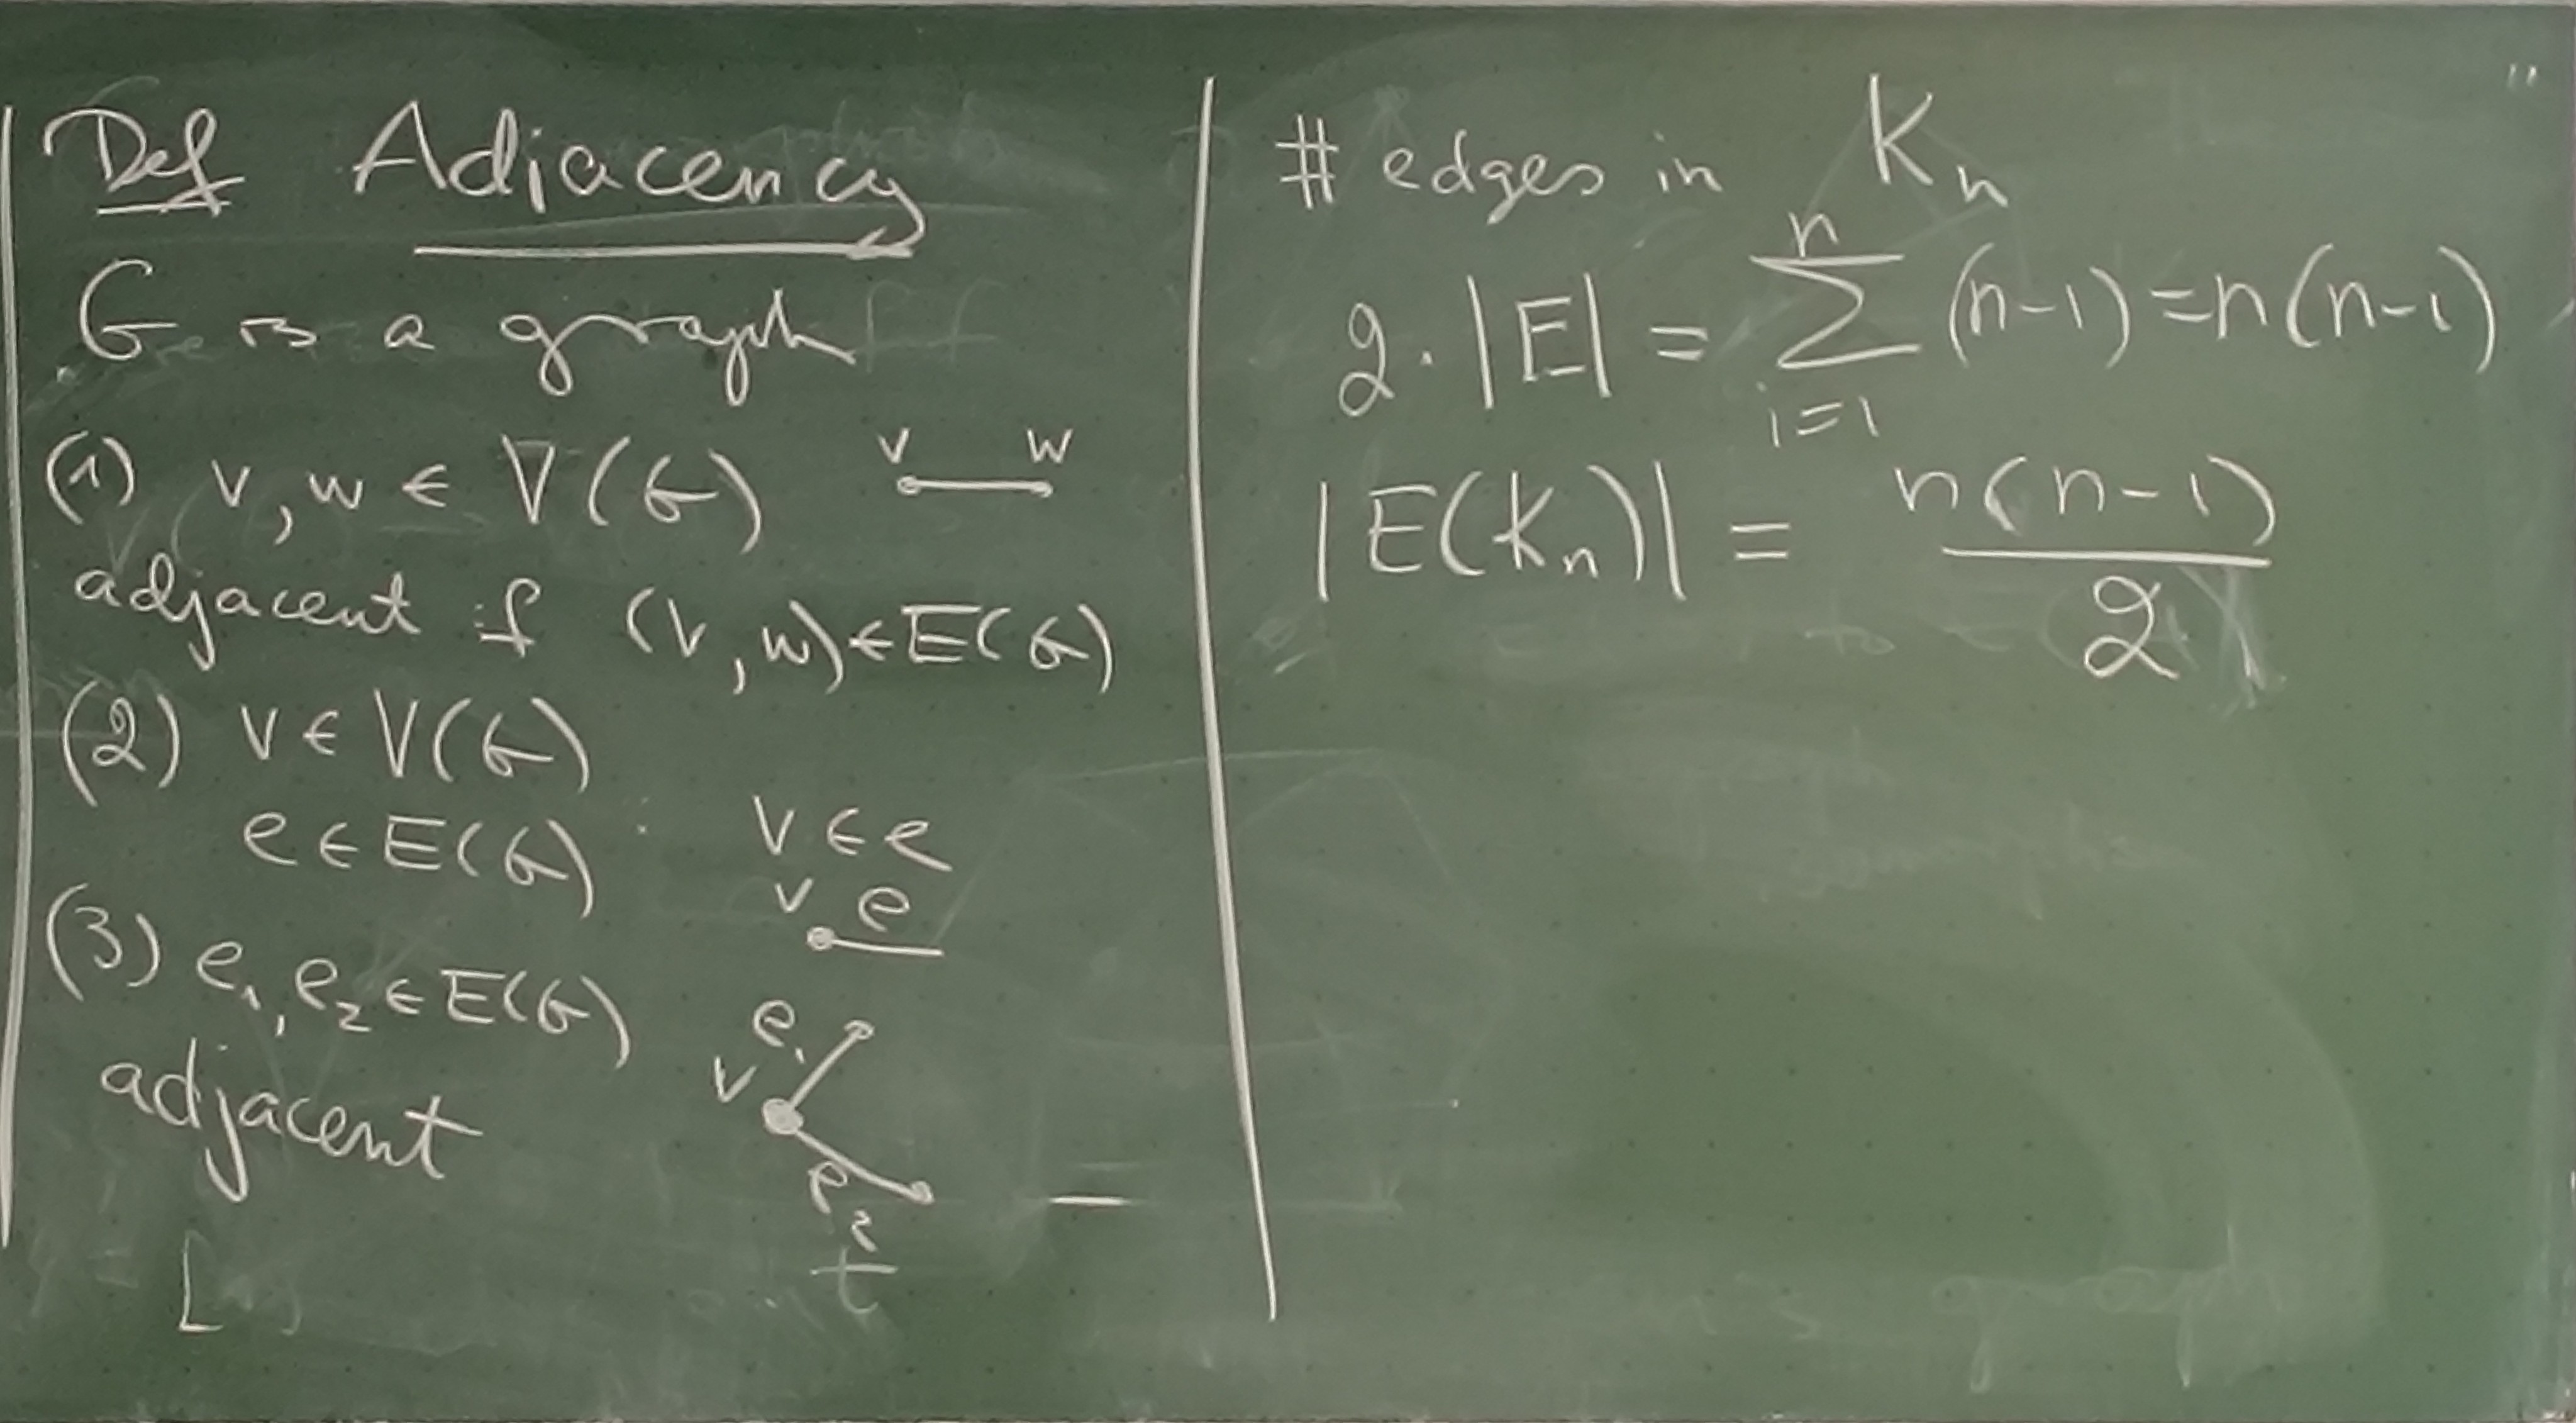 Def Adjacency
G is a graph
(1) v, w ∈ V(G) v w
adjacent if (v, w) ∈ E(G)
(2) v ∈ V(G)
e ∈ E(G) v ∈ e
v e
(3) e₁, e₂ ∈ E(G)
adjacent
e₁
v
e₂
t
# edges in Kₙ
n
2 · |E| = ∑ (n-1) = n(n-1)
i=1
|E(Kₙ)| = n(n-1)
2